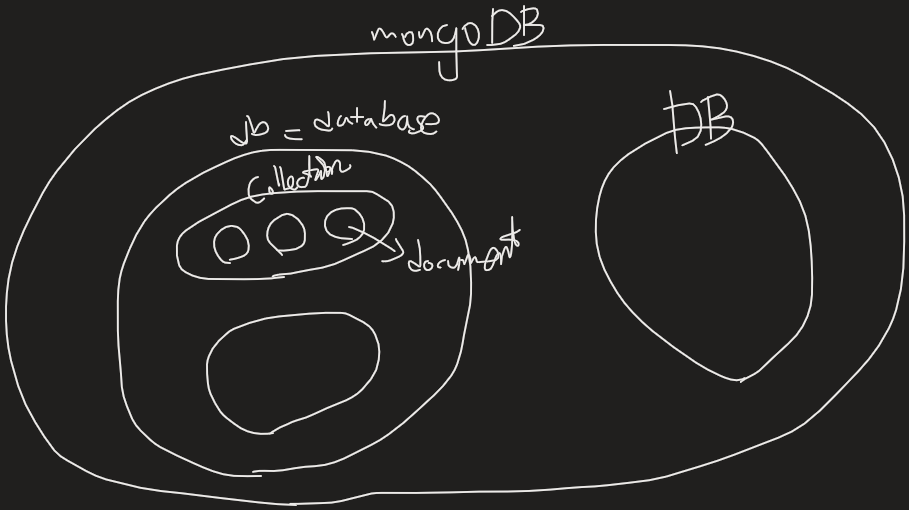 mongoDB
db = database
DB
Collection
document